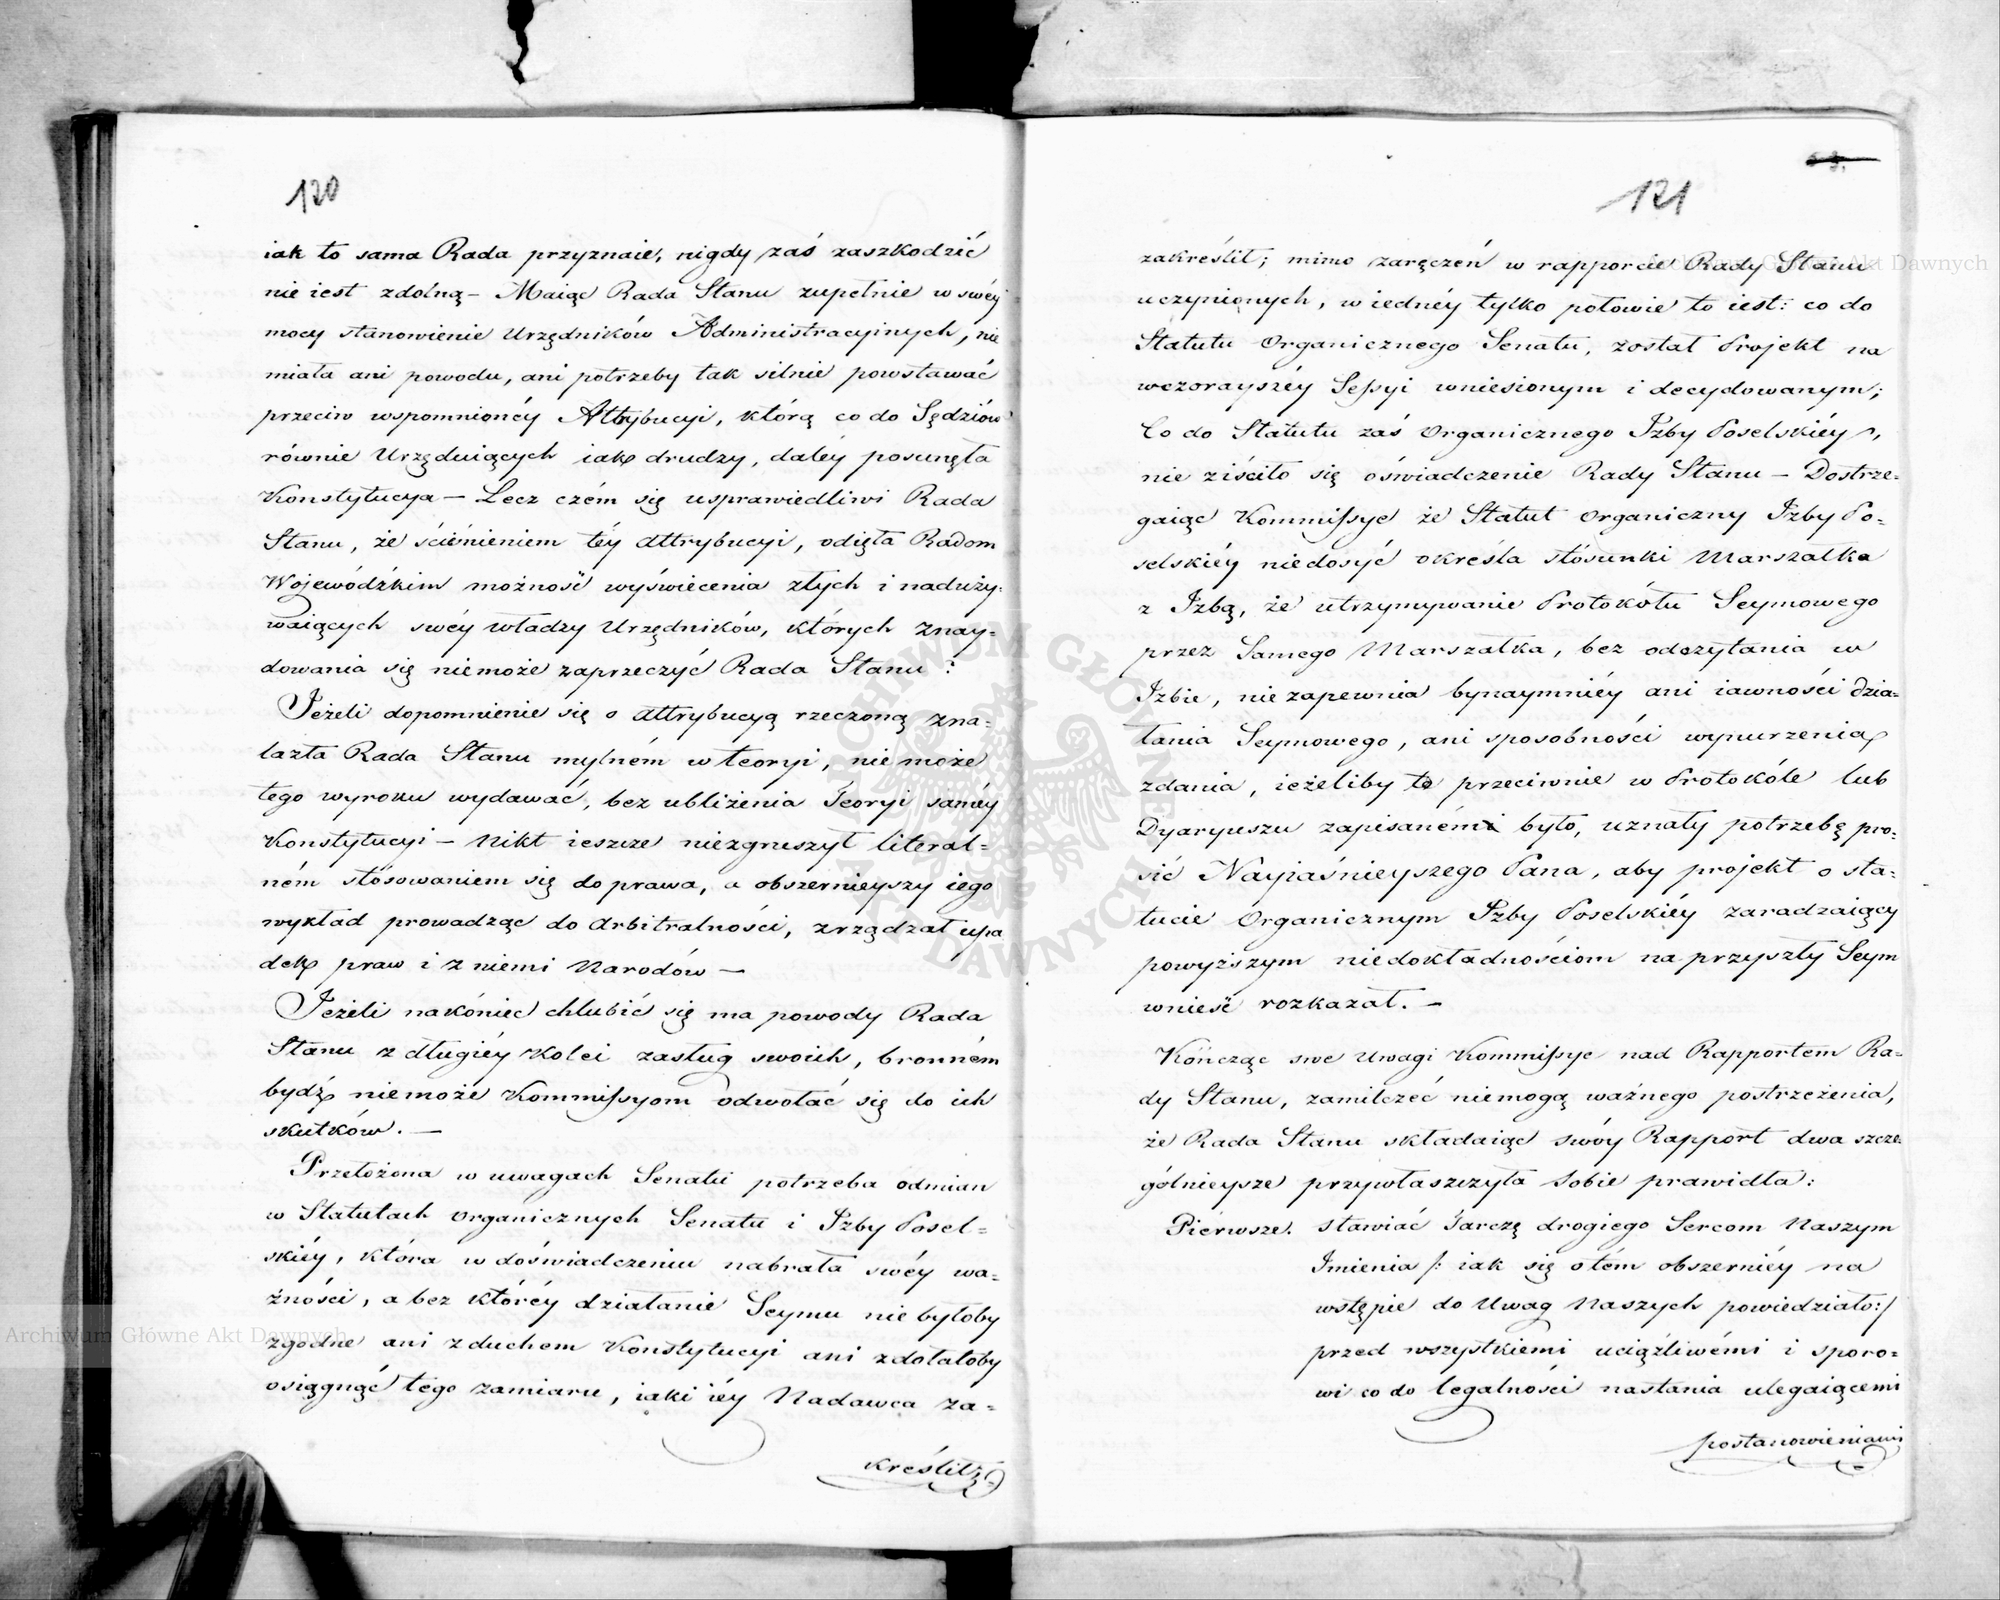 120
iak to sama Rada przyznaie, nigdy zaś zaszkodzić
nie iest zdolną – Maiąc Rada Stanu zupełnie w swéy
mocy stanowienie Urzędników Administracyinych, nie
miała ani powodu, ani potrzeby tak silnie powstawać
przeciw wspomnionéy Attrybucyi, którą co do Sędziów
równie Urzęduiących iak drudzy, daléy posunęła
Konstytucya – Lecz czém się usprawiedliwi Rada
Stanu, że ścieśnieniem téy Attrybucyi, odięła Radom
Wojewódźkim możność wyświecenia złych i naduży-
waiących swéy władzy Urzędników, których znay-
dowania się niemoże zaprzeczyć Rada Stanu?
Jeżeli dopomnienie się o Attrybucyą rzeczoną zna-
lazła Rada Stanu mylném w teoryi, nie może
tego wyroku wydawać, bez ubliżenia Teoryi saméy
Konstytucyi – Nikt ieszcze niezgruszył literal-
ném stósowaniem się do prawa, a obszernieyszy iego
wykład prowadząc do Arbitralności, zrządzał upa
dek praw i z niemi Narodów –
Jeżeli nakóniec chlubić się ma powody Rada
Stanu z długiéy kolei zasług swoich, bronném
bydź niemoże Kommissyom odwołać się do ich
skutków. –
Przełożona w uwagach Senatu potrzeba odmian
w Statutach Organicznych Senatu i Izby Posel-
skiéy, która w doświadczeniu nabrała swéy wa-
żności, a bez któréy działanie Seymu nie byłoby
zgodne ani z duchem Konstytucyi ani zdołałoby
osiągnąć tego zamiaru, iaki iéy Nadawca za-
kreślił
121
zakreślił; mimo zaręczeń w rapporcie Rady Stanu
uczynionych, w iednéy tylko połowie to iest: co do
Statutu Organicznego Senatu, został Projekt na
wczorayszéy Sessyi wniesionym i decydowanym;
Co do Statutu zaś Organicznego Izby Poselskiéy,
nie ziściło się oświadczenie Rady Stanu – Dostrze-
gaiąc Kommissye że Statut Organiczny Izby Po-
selskiéy niedosyć określa stósunki Marszałka
z Izbą, że utrzymywanie Protokółu Seymowego
przez Samego Marszałka, bez odczytania w
Izbie, nie zapewnia bynaymniéy ani iawności dzia-
łania Seymowego, ani sposobności wynurzenia
zdania, ieżeliby te przeciwnie w Protokóle lub
Dyaryuszu zapisaném było, uznały potrzebę pro-
sić Nayiaśnieyszego Pana, aby projekt o sta-
tucie Organicznym Izby Poselskiéy zaradzaiący
powyższym niedokładnościom na przyszły Seym
wnieść rozkazał. –
Kończąc swe Uwagi Kommissye nad Rapportem Ra-
dy Stanu, zamilczeć niemogą ważnego postrzeżenia,
że Rada Stanu składaiąc swóy Rapport dwa szcze-
gólnieysze przywłaszczyła sobie prawidła:
Piérwsze. stawiać Tarczę drogiego Sercom Naszym
Imienia /: iak się o tém obszerniéy na
wstępie do Uwag Naszych powiedziało:/
przed wszystkiemi uciążliwémi i sporo-
wi co do legalności nastania ulegaiącemi
postanowieniami
ARCHIWUM GŁÓWNE AKT DAWNYCH
Archiwum Główne Akt Dawnych
Archiwum Główne Akt Dawnych